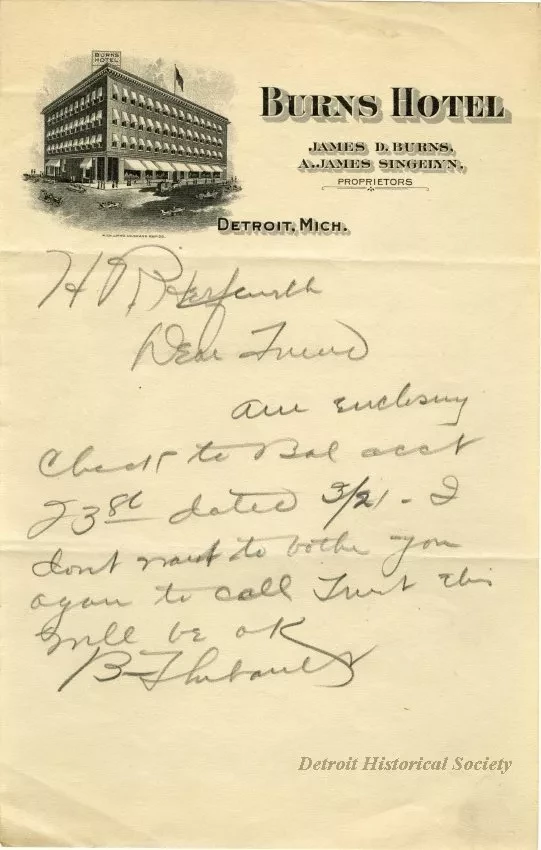 BURNS HOTEL
BURNS HOTEL
JAMES D. BURNS,
A. JAMES SINGELYN.
PROPRIETORS
DETROIT, MICH.
H
Dear Friend
am enclosing
Check to Bal acct
23 dated 3/21 - I
dont want to bother you
again to call Trust this
will be OK
B Thibault
Detroit Historical Society